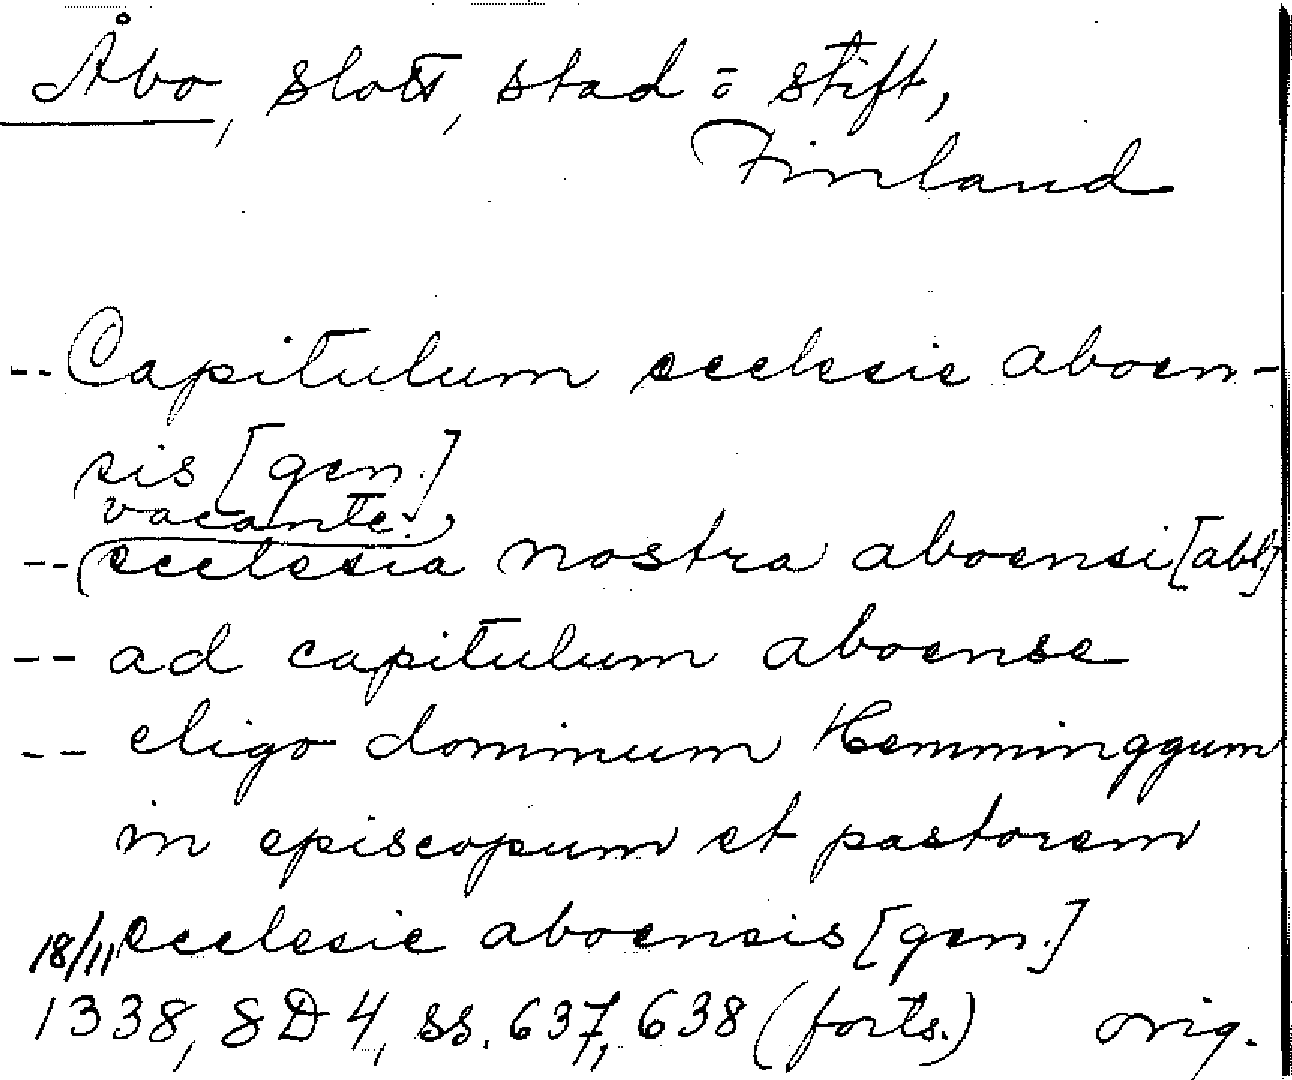 Åbo, slott, stad = stift,
Finland
-- Capitulum ecclesie aboen-
sis [gen.]
vacante
-- ecclesia nostra aboensi [abl.]
-- ad capitulum aboense
-- eligo dominum Hemminggum
in episcopum et pastorem
18/11 ecclesie aboensis [gen.]
1338, SD 4, ss. 637, 638 (forts.) orig.